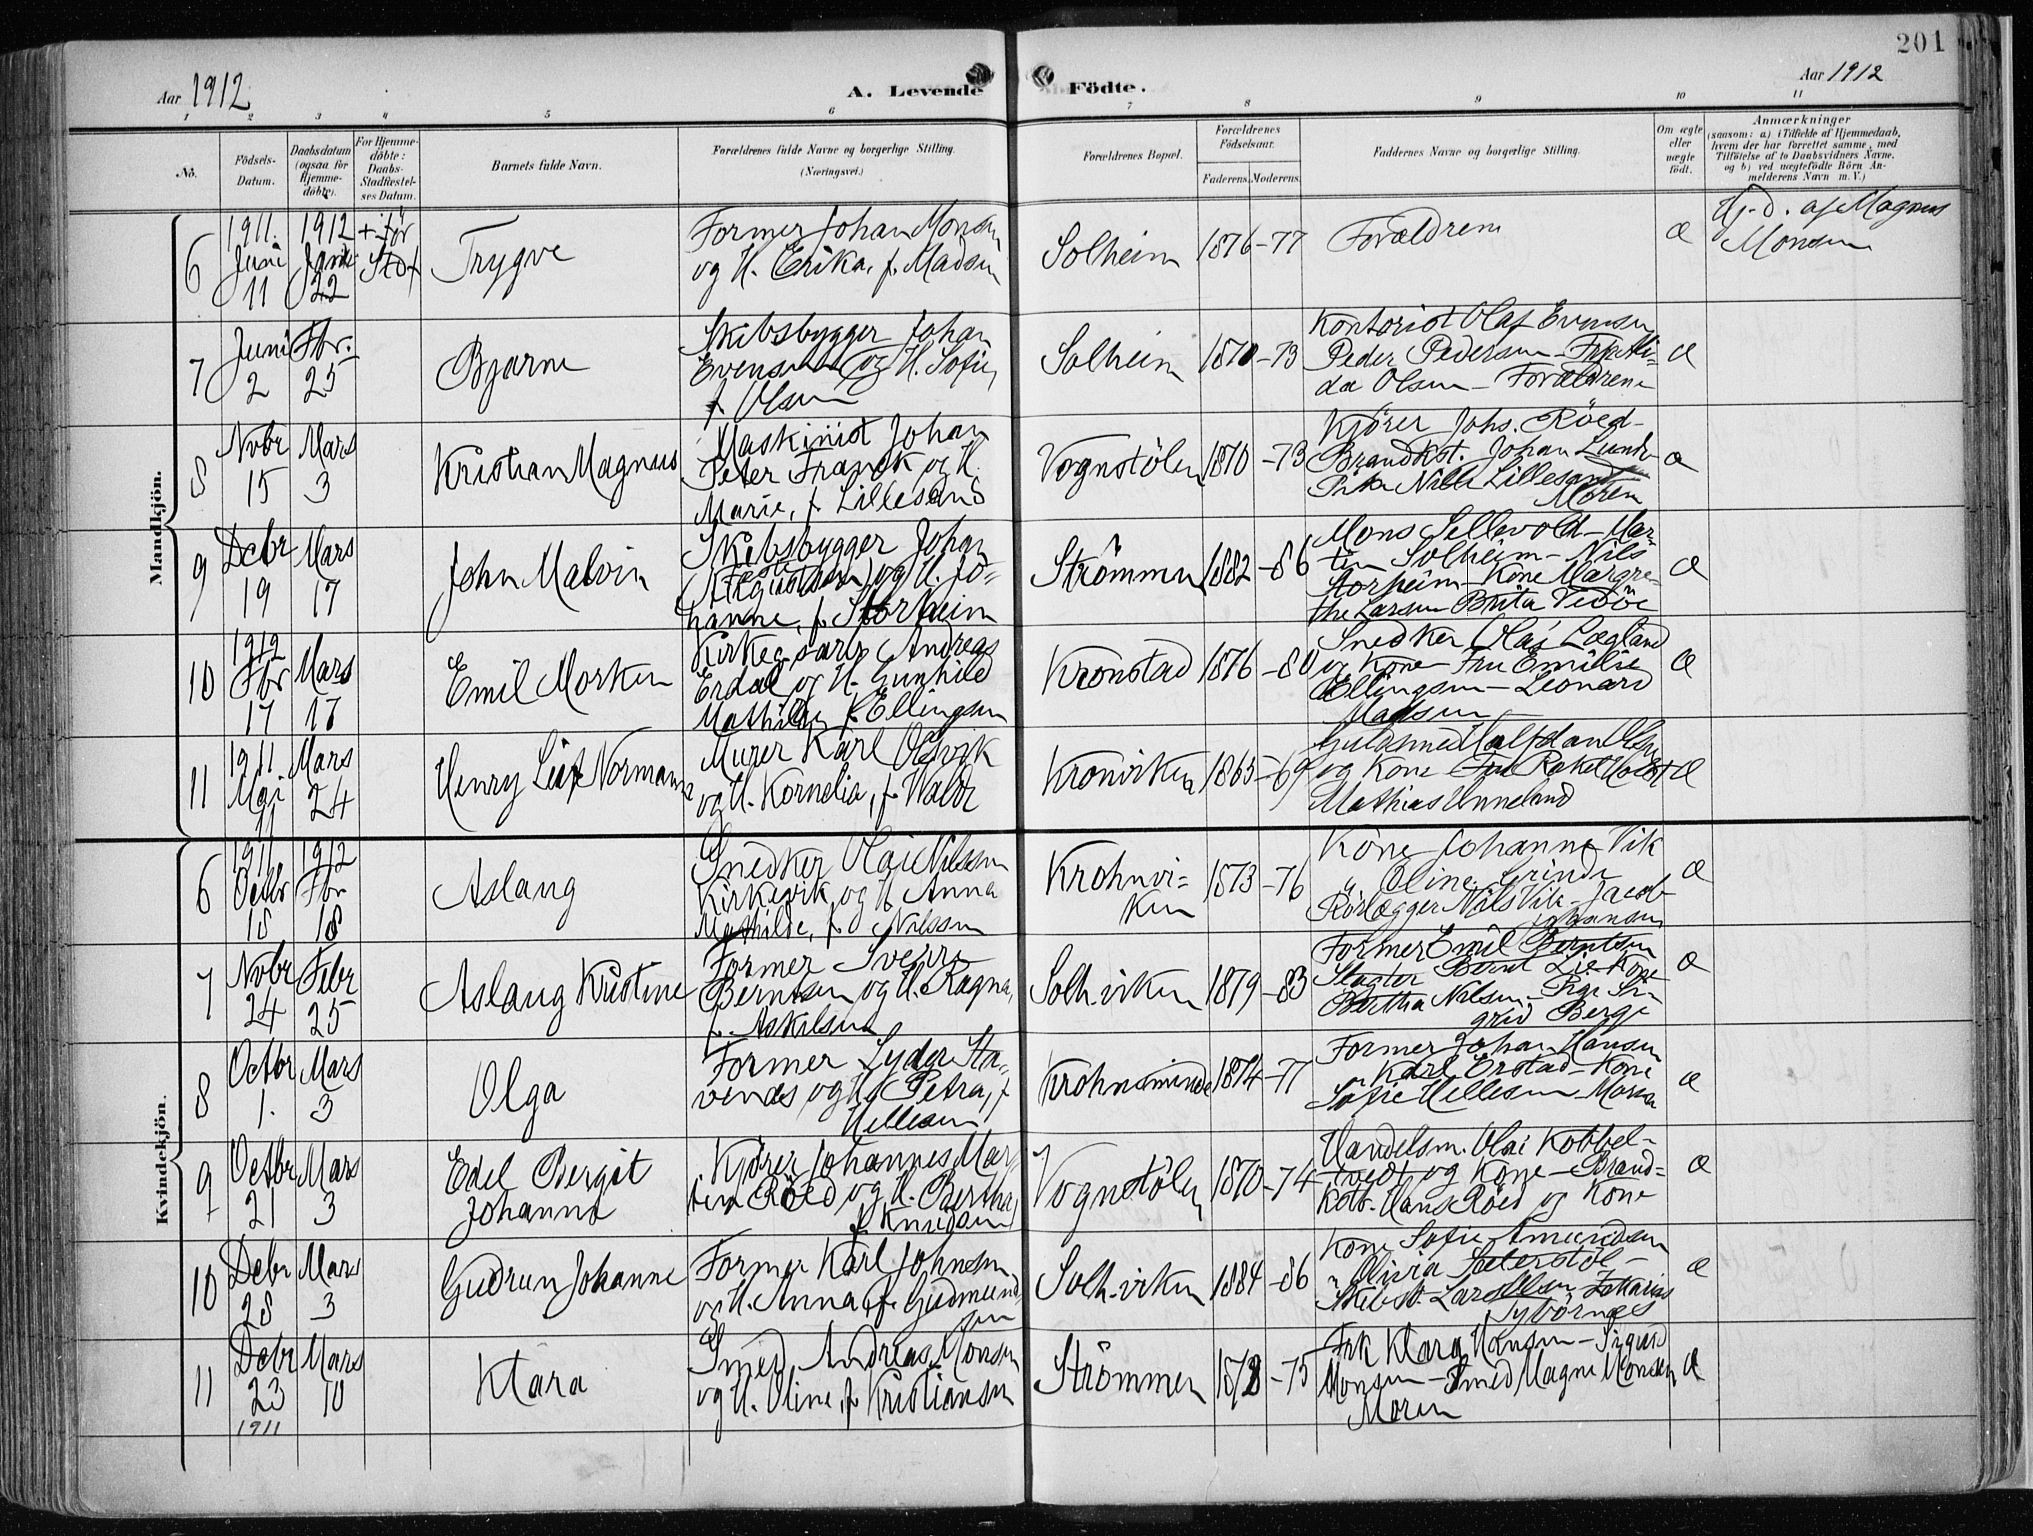 201
Aar 1912
A. Levende Födte.
Aar 1912
1 2 3 4 5 6 7 8 9 10 11
No.
Födsels-Datum.
Daabsdatum (ogsaa for Hjemme-döbte).
For Hjemme-döbte: Daabs-Stadfæstel-ses Datum.
Barnets fulde Navn.
Forældrenes fulde Navne og borgerlige Stilling.
(Næringsvei.)
Forældrenes Bopæl.
Forældrenes Födselsaar.
Faderens. Moderens.
Faddernes Navne og borgerlige Stilling.
Om ægte eller uægte födt.
Anmærkninger
(saasom: a) i Tilfælde af Hjemmedaab, hvem der har forrettet samme, med Tilföielse af to Daabsvidners Navne, og b) ved uægtefödte Börn Anmelderens Navn m. V.)
Mandkjön.
6 1911. Juni 11 1912 22 +för Trygve
Former Johan Monsen
og H. Erika, f. Madsen
Solheim 1876 -77 Forældrene æ
Hj.d. af Magnus
Monsen
7 Juni 2 Fbr. 25 Bjarne
Skibsbygger Johan
Evensen og H. Sofie,
f. Olsen
Solheim 1870 -73
Kontorist Olaf Evensen
Peder Pedersen - Frk
da Olsen - Forældrene
æ
8 Nvbr 15 Mars 3 Kristian Magnus
Maskinist Johan
Peter Franck og H.
Marie, f. Lillesand
Vognstölen 1870 -73
Kjörer Johs. Röed -
Brandkst. Johan Lund
Lillesand
Moren
æ
9 Debr 19 Mars 17 John Malvin
Skibsbygger Johan
og H. Jo-
hanne, f. Storheim
Strömmen 1882 -86
Mons Sellevold - Mar-
tin Solheim - Nils
Storheim - Kone Margre-
the Larsen Brita
æ
10 1912 Fbr 17 Mars 17 Emil Morken
Andreas
Erdal og H. Gunhild
Mathilde, f. Ellingsen
Kronstad 1876 -80
Snedker Olai Lægland
og Kone - Fru Emilie
Ellingsen - Leonard
Madsen
æ
11 1911. Mai 11 Mars 24 Henry Leif Normann
Murer Karl Olsvik
og H. Kornelia, f. Walde
Kronviken 1865 -69
Guldsmed Halfdan Olsen
og Kone - Rakel
Mathias Unneland
æ
Kvindekjön.
6 1911. Octbr 18 1912 Fbr 18 Aslaug
Snedker Olai Nilssen
Kirkevik og H. Anna
Mathilde, f. Nilssen
Krohnvi-
ken 1873 -76
Kone Johanne Vik
" Oline Grinde
Rörlægger Nils Vik - Jacob
Johansen
æ
7 Nvbr 24 Febr 25 Aslaug Kristine
Former Sverre
Berntsen og H. Ragna,
f. Askilsen
Solh.viken 1879 -83
Former Emil Berntsen
Slagter Bernt Lie - Kone
Bertha Nilsen - Pige Si-
grid Berge
æ
8 Octbr 1. Mars 3 Olga
Former Lyder Sta-
venes og H. Petra, f.
Hellesen
Krohnsminde 1874 -77
Former Johan Hansen
" Karl Örstad - Kone
Sofie Hellesen -
æ
9 Octbr 21 Mars 3 Edel Bergit
Johanne
Kjörer Johannes Mar-
tin Röed og H. Bertha,
f. Knudsen
Vognstölen 1870 -74
Handelsm. Olai Kobbel-
tvedt og Kone - Brand-
kstb. Hans Röed og Kone
æ
10 Debr 28 Mars 3 Gudrun Johanne
Former Karl Johnsen
og H. Anna, f. Gudmund-
sen
Solh.viken 1884 -86
Kone Sofie Amundsen
" Olivia Sæterstöl -
Skibsb. Lars Olsen
æ
11 Debr 23 1911 Mars 10 Klara
Smed Andreas Monsen
og H. Oline, f. Kristiansen
Strömmen 1872 -75
Frk Klara Hansen - Sigurd
Monsen - Smed Magne Monsen
Moren
æ